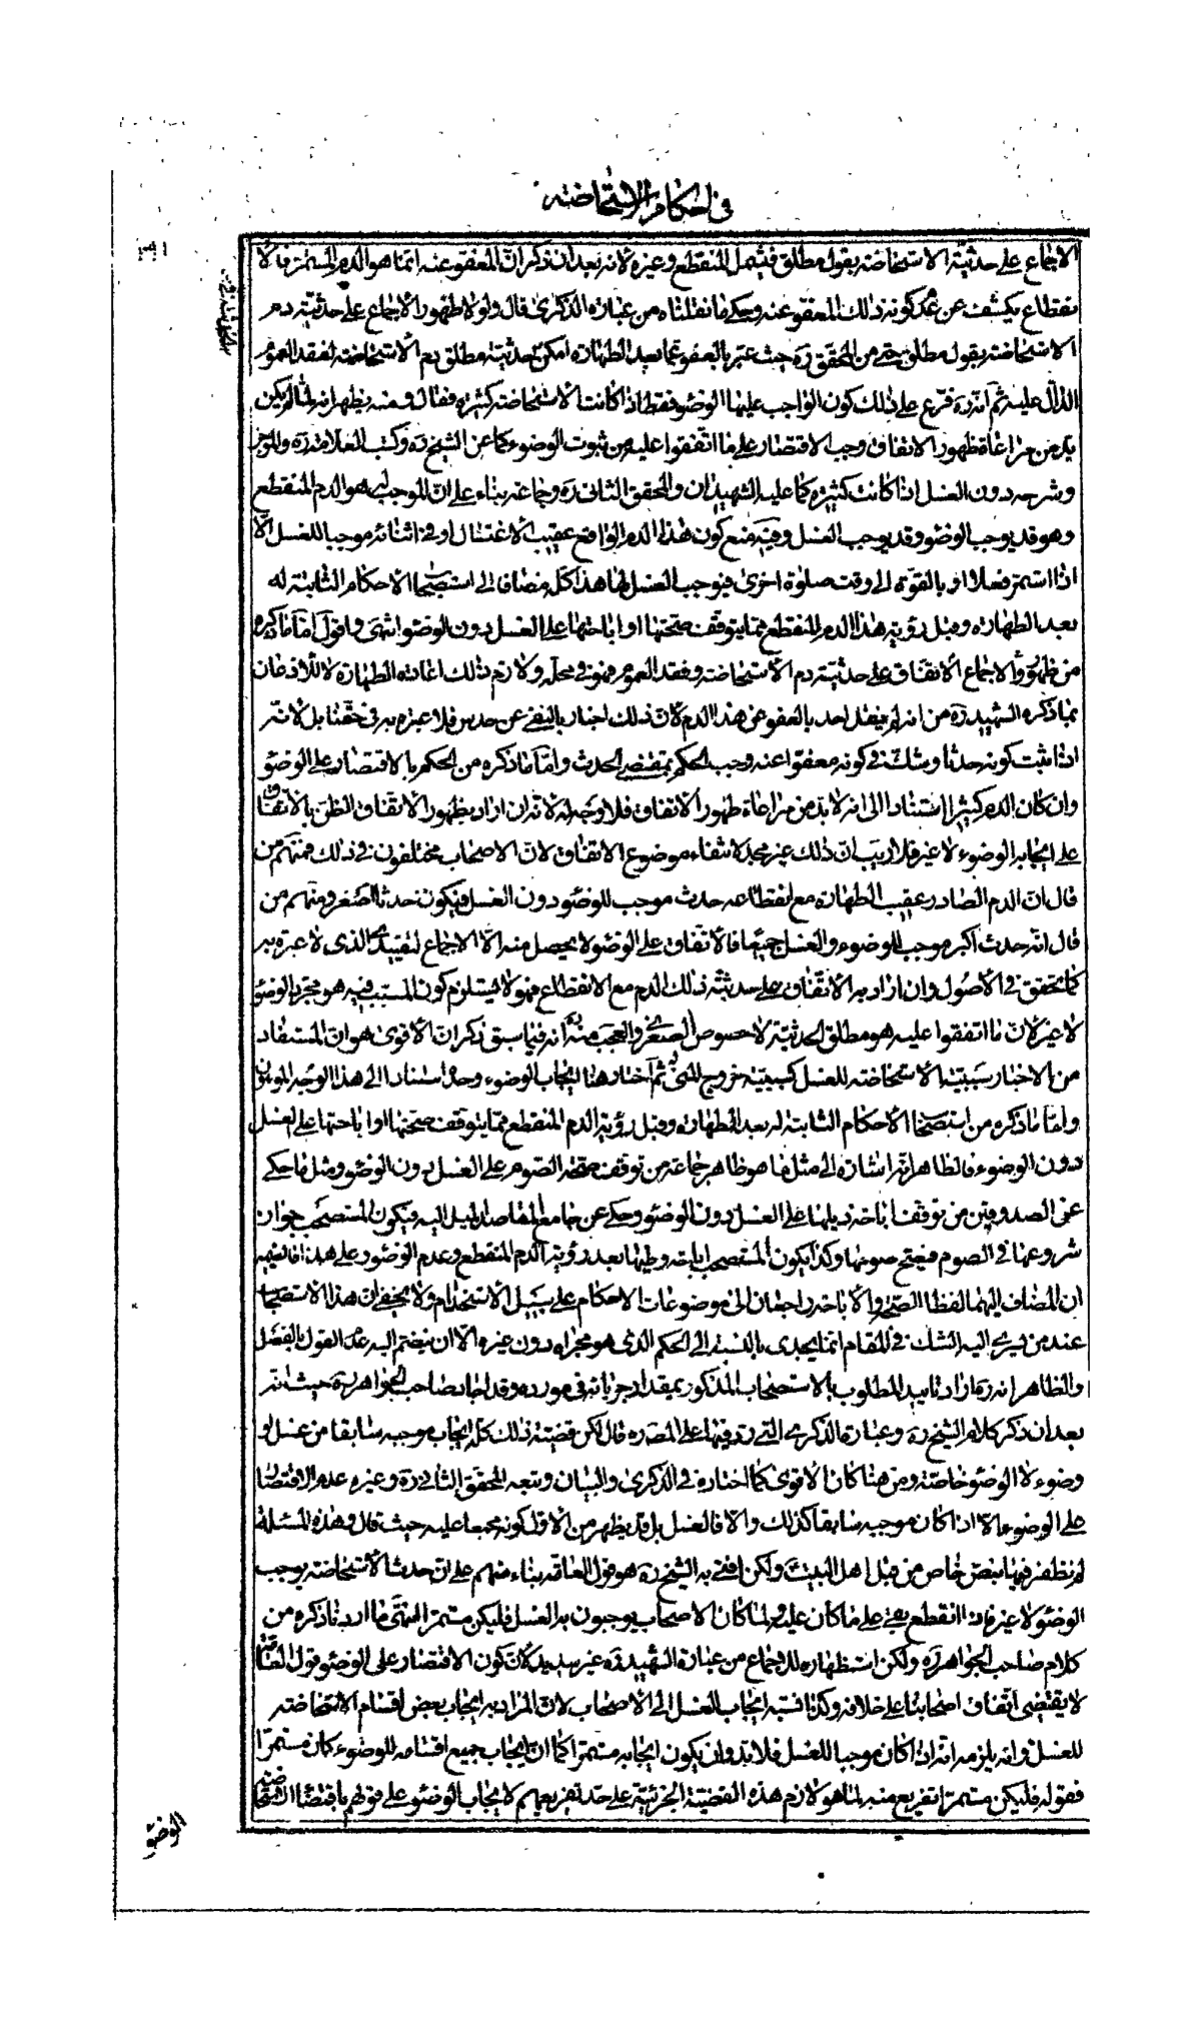 في احكام الاستحاضة
الاجماع على حدثيّة الاستحاضة بقول مطلق فيشمل المنقطع وغيره لانه بعد ان ذكر انّ المعفو عنه انما هو الدم المستمر فالا
نقطاع يكشف عن عدم كونه ذلك المعفو عنه وحكى ما نقلناه من عبارة الذكرى قال ولولا ظهور الاجماع على حدثيّة دم
الاستحاضة بقول مطلق حتى من المحقق ره حيث عبّر بالعفو عما بعد الطهارة امكن حدثية مطلق دم الاستحاضة لفقد العموم
الدال عليه ثم انه ره فرّع على ذلك كون الواجب عليها الوضوء فقط اذا كانت الاستحاضة كثيرة فقال ومنه يظهر انه لما لم يكن
بدّ من مراعاة ظهور الاتفاق وجب الاقتصار على ما اتّفقوا عليه من ثبوت الوضوء كما عن الشيخ ره وكتب العلامة ره والموجز
وشرحه دون الغسل اذا كانت كثيرة كما عليه الشهيدان والمحقق الثاني ره وجماعة بناء على انّ الموجب له هو الدم المنقطع
وهو قد يوجب الوضوء وقد يوجب الغسل وفيه منع كون هذا الدم الواقع عقيب الاغتسال او في اثنائه موجبا للغسل الّا
اذا استمر فعلا او بالقوة الى وقت صلوة اخرى فيوجب الغسل لها هذا كلّه مضافا الى استصحاب الاحكام الثابتة له
بعد الطهارة وقبل رؤية هذا الدم المنقطع مما يتوقف صحتها او اباحتها على الغسل دون الوضوء انتهى واقول امّا ما ذكره
من ظهور الاجماع الاتّفاق على حدثيّة دم الاستحاضة وفقد العموم فهو في محلّه ولازم ذلك اعادة الطهارة لا للاذعان
بما ذكره الشهيد ره من انه لم ينقل احد بالعفو عن هذا الدم لانّ ذلك اخبار بالنفي عن حدس فلا عبرة به في حقنا بل لانّه
اذا ثبت كونه حدثا وشك في كونه معفوا عنه وجب الحكم بمقتضى الحدث وامّا ما ذكره من الحكم بالاقتصار على الوضوء
وان كان الدم كثيرا استنادا الى انه لا بدّ من مراعاة ظهور الاتفاق فلا وجه له لانّه ان اراد بظهور الاتفاق الظن بالاتفاق
على ايجابه الوضوء لا غير فلا ريب انّ ذلك غير مجد لانتفاء موضوع الاتفاق لانّ الاصحاب مختلفون في ذلك فمنهم من
قال انّ الدم الصادر عقيب الطهارة مع انقطاعه حدث موجب للوضوء دون الغسل فيكون حدثا اصغر ومنهم من
قال انّه حدث اكبر موجب للوضوء والغسل جميعا فالاتّفاق على الوضوء لا يحصل منه الّا الاجماع التقييدي الذي لا عبرة به
كما تحقق في الاصول وان اراد به الاتّفاق على حدثيّة ذلك الدم مع الانقطاع فهو لا يستلزم كون المسبّب فيه هو مجرد الوضوء
لا غير لانّ ما اتفقوا عليه هو مطلق الحدثيّة لا خصوص الصغرى والعجب منه انه فيما سبق ذكر انّ الاقوى هو انّ المستفاد
من الاخبار سببيّة الاستحاضة للغسل كسببيّة خروج المنى ثم اختار هنا ايجاب الوضوء وحده استنادا الى هذا الوجه الموهون
وامّا ما ذكره من استصحاب الاحكام الثابتة له بعد الطهارة وقبل رؤية الدم المنقطع مما يتوقف صحتها او اباحتها على الغسل
دون الوضوء فالظاهر انّه اشارة الى مثل ما هو ظاهر جماعة من توقف صحّة الصوم على الغسل دون الوضوء ومثل ما حكى
عن الصدوقين من توقف اباحة وطيها على الغسل دون الوضوء وحكى عن جامع المقاصد الميل اليه ويكون المستصحب جواز
شروعها في الصوم فيصحّ صومها وكذا يكون المستصحب اباحة وطيها بعد رؤية الدم المنقطع وعدم الوضوء وعلى هذا فالضمير
ان المضاف اليهما لفظا الصحّة والاباحة راجعان الى موضوعات الاحكام على سبيل الاستخدام ولا يخفى انّ هذا الاستصحاب
عند من يرى اليه الشك في المقام انما يجدى بالنسبة الى الحكم الذي هو مجراه دون غيره الّا ان ينضم اليه عدم القول بالفصل
والظاهر انه ره اراد تاييد المطلوب بالاستصحاب المذكور بمقدار جريانه في مورده وقد اجاد صاحب الجواهر ره حيث انّه
بعد ان ذكر كلام الشيخ ره وعبارة الذكرى التي ردّ فيها على المص ره قال لكن قضيّة ذلك كلّه ايجاب موجبه سابقا من غسل او
وضوء لا الوضوء خاصّة ومن هنا كان الاقوى كما اختاره في الذكرى والبيان وتبعه المحقق الثاني ره وغيره عدم الاقتصار
على الوضوء الّا اذا كان موجبه سابقا كذلك والّا فالغسل بل قد يظهر من الاوّل كونه مجمعا عليه حيث قال وهذه المسئلة
لم نظفر فيها بنصّ خاص من قبل اهل البيت ع ولكن افتى به الشيخ ره هو قول العامّة بناء منهم على انّ حدث الاستحاضة يوجب
الوضوء لا غير فاذا انقطع بقى على ما كان عليه ولما كان الاصحاب يوجبون به الغسل فليكن مستمرا انتهى ما اردنا ذكره من
كلام صاحب الجواهر ره ولكن استظهاره للاجماع من عبارة الشهيد ره غير سديد لانّ كون الاقتصار على الوضوء قول العامّة
لا يقتضى اتّفاق اصحابنا على خلافه وكذا نسبة ايجاب الغسل الى الاصحاب لانّ المراد به ايجاب بعض اقسام الاستحاضة
للغسل وانه يلزمه انّه اذا كان موجبا للغسل فلا بدّ وان يكون ايجابه مستمرا كما انّ ايجاب جميع اقسامه للوضوء كان مستمرّا
فقوله فليكن مستمرّا تفريع منه لما هو لازم هذه القضيّة الجزئيّة على حدّ تفريعهم لايجاب الوضوء على قولهم باقتضاء الاستحاضة
الوضوء